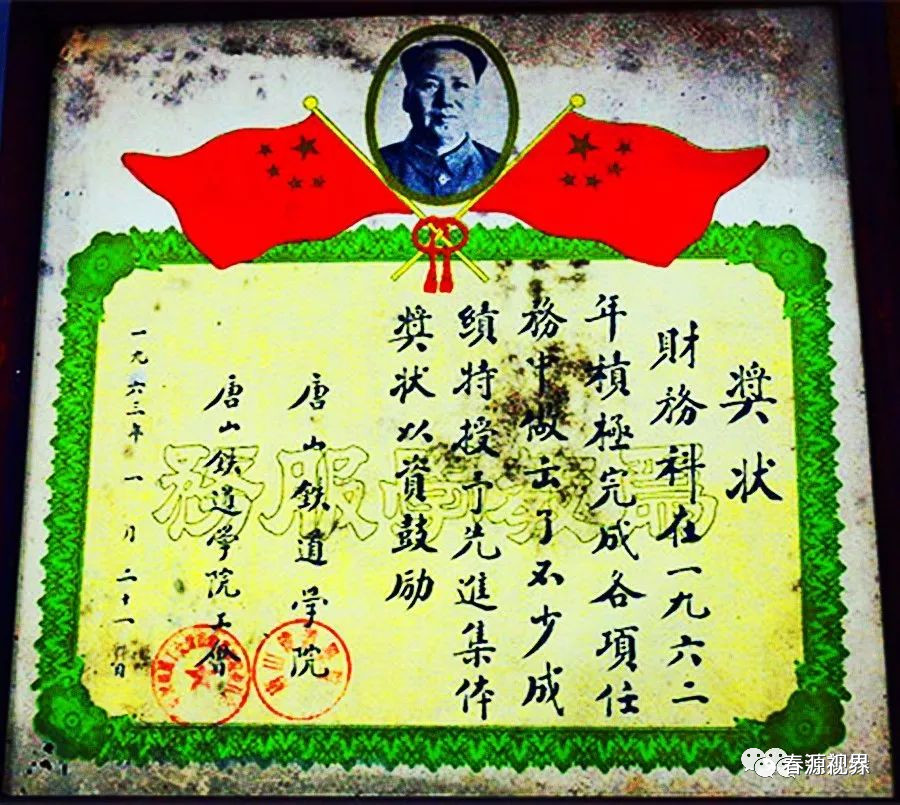 奬状
財務科在一九六二
年積極完成各項任
務中做出了不少成
績特授予先進集体
奬状以資鼓励
唐山鉄道学院
唐山鉄道学院工會
一九六三年一月二十一日
爲教學服務
春源视界